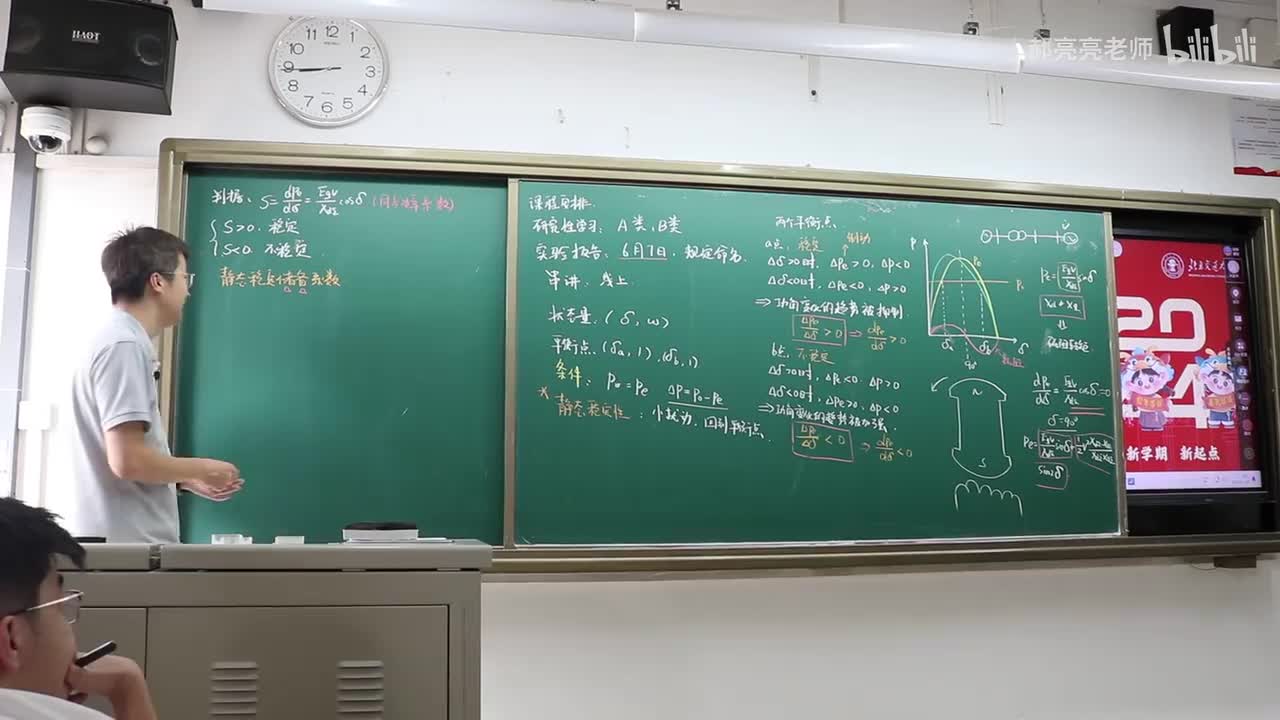 郝亮亮老师 bilibili
11 12 1 2 3 4 5 6 7 8 9 10
判据: S = dPe/dδ = EqV/XdΣ cosδ (同步功率系数)
S>0. 稳定
S<0. 不稳定
静态稳定储备系数
课程安排.
研究性学习: A类, B类
实验报告: 6月7日, 规定命名.
串讲. 线上.
状态量. (δ, ω)
平衡点. (δa, 1), (δb, 1)
条件: P0 = Pe ΔP = P0 - Pe
* 静态稳定性: 小扰动. 回到平衡点.
两个平衡点.
a点. 稳定 制动
Δδ>0时, ΔPe>0, ΔP<0
Δδ<0时, ΔPe<0, ΔP>0
⇒功角变化的趋势被抑制.
ΔPe/Δδ > 0 ⇒ dPe/dδ > 0
b点. 不稳定
Δδ>0时, ΔPe<0. ΔP>0
Δδ<0时, ΔPe>0, ΔP<0
⇒功角变化的趋势被加强.
ΔPe/Δδ < 0 ⇒ dPe/dδ < 0
P
Pe
P0
δa 90° δb δ
Pe = EqV/XdΣ sinδ
dPe/dδ = EqV/XdΣ cosδ = 0
δ = 90°
sin2δ
N
S
2024
新学期 新起点